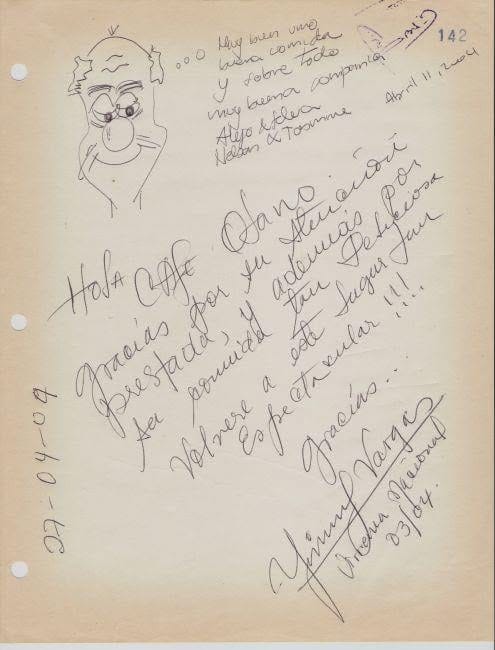 142
Muy buen vino
buena comida
y sobre todo
muy buena compañia
Alejo &
Nelson & Jasmine
Abril 11, 2004
Hola CAFE Osano.
Gracias por su atención
prestada, y además por
su comida tan Deliciosa
Volvere a este lugar tan
Espectacular!!!...
Gracias...
Yimmy Vargas
Vinchia Nacional
03/04.
27-04-04